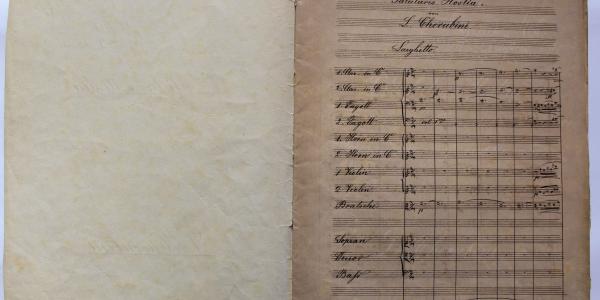 Salutaris Hostia.
von
L. Cherubini
Larghetto.
1. Clar. in C
2. Clar. in C
1. Fagott
2. Fagott
1. Horn in C
2. Horn in C
1 Violin
2 Violin
Bratsche
Sopran
Tenor
Baſs